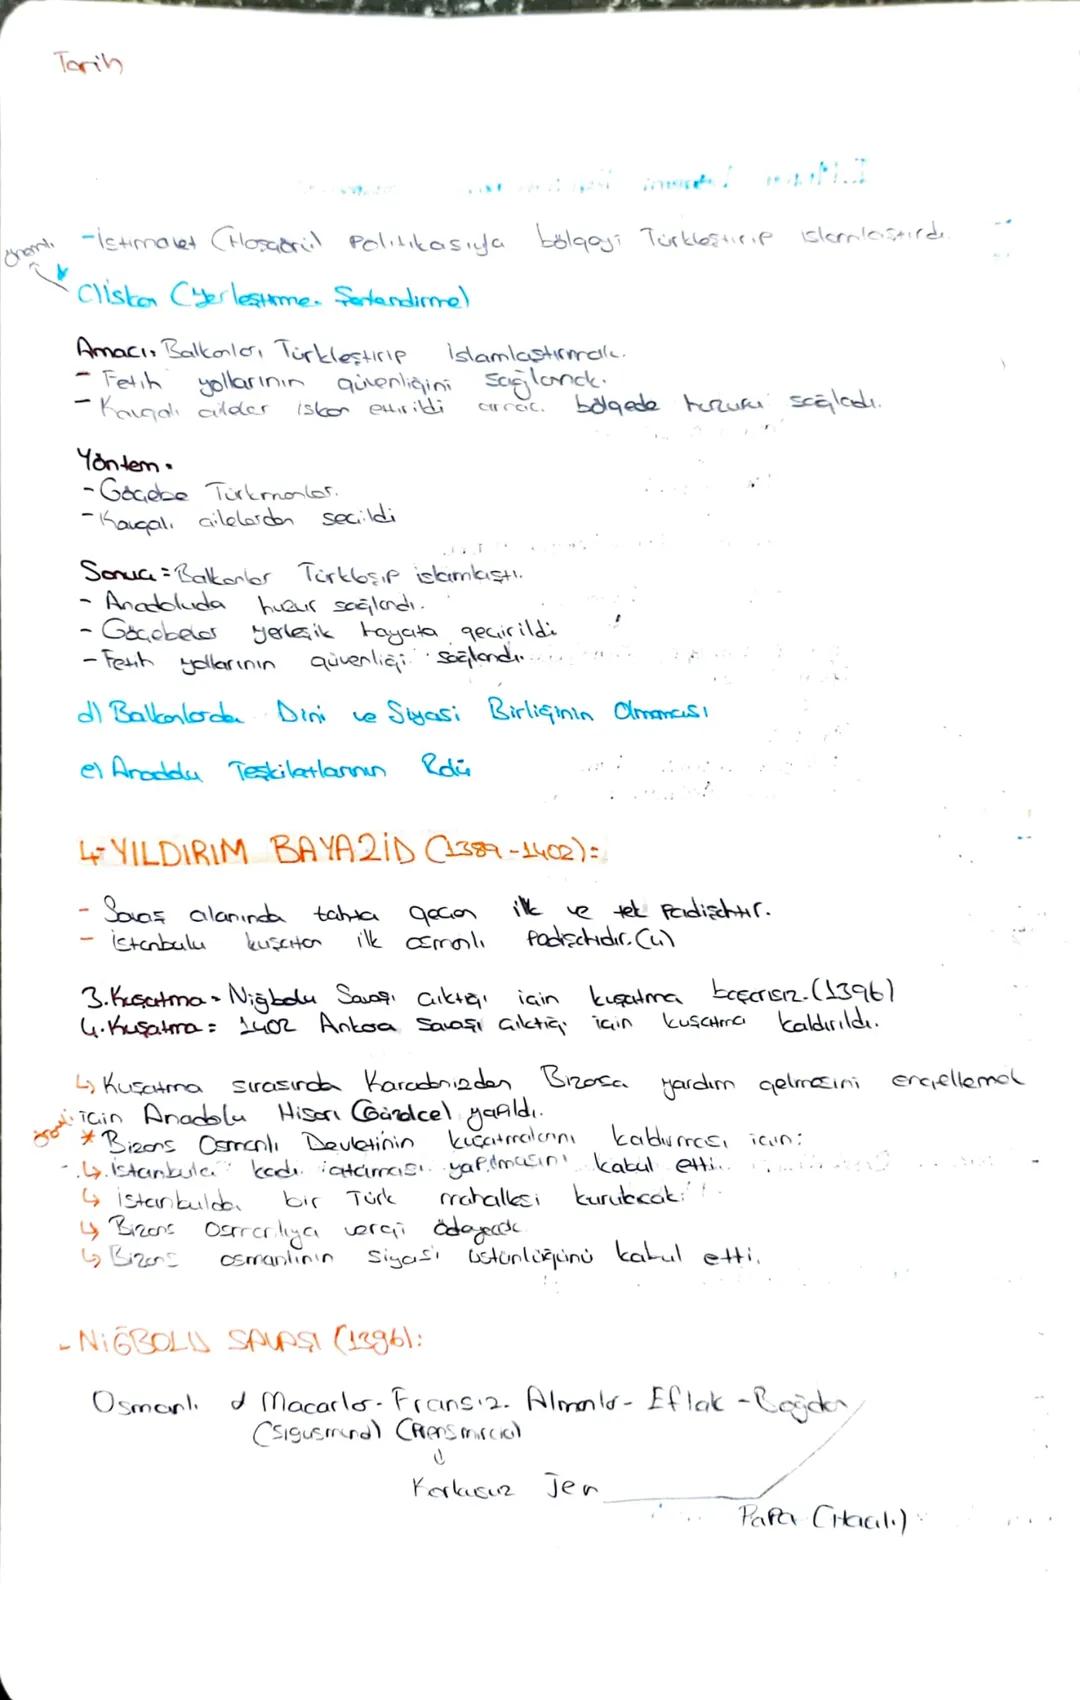 Tarih
-İstimalet (Hoşgörü) Politikasıyla bölgeyi Türkleştirip islamlaştırdı.
önemli
c) İskan (Yerleştirme. Şenlendirme)
Amacı: Balkanları Türkleştirip islamlaştırmak.
- Fetih yollarının güvenliğini sağlamak.
- Kavgalı aileler iskan ettirildi amaç bölgede huzuru sağladı.
Yöntem:
- Göçebe Türkmenler.
- Kavgalı ailelerden seçildi
Sonuç = Balkanlar Türkleşip islamlaştı.
- Anadoluda huzur sağlandı.
- Göçebeler yerleşik hayata geçirildi
- Fetih yollarının güvenliği sağlandı.
d) Balkanlarda Dini ve Siyasi Birliğinin Olmaması
e) Anadolu Teşkilatlarının Rolü
4-YILDIRIM BAYAZİD (1389-1402):
- Savaş alanında tahta geçen ilk ve tek Padişahtır.
- istanbulu kuşatan ilk osmanlı Padişahıdır. (4)
3.Kuşatma = Niğbolu Savaşı çıktığı için kuşatma başarısız. (1396)
4.Kuşatma = 1402 Ankara Savaşı çıktığı için kuşatma kaldırıldı.
↳ Kuşatma sırasında Karadenizden Bizansa yardım gelmesini engellemek
için Anadolu Hisarı (Güzelce) yapıldı.
* Bizans Osmanlı Devletinin kuşatmalarını kaldırması için:
↳ istanbula kadı ataması yapılmasını kabul etti.
↳ istanbulda bir Türk mahallesi kurulacak.
↳ Bizans Osmanlıya vergi ödeyecek
↳ Bizans osmanlının siyasi üstünlüğünü kabul etti.
- NİĞBOLU SAVAŞI (1396):
Osmanlı Macarlar- Fransız- Almanlar- Eflak -Boğdan
(Sigusmund) (Prens mircia)
Korkusuz Jen
Papa (Haçlı)